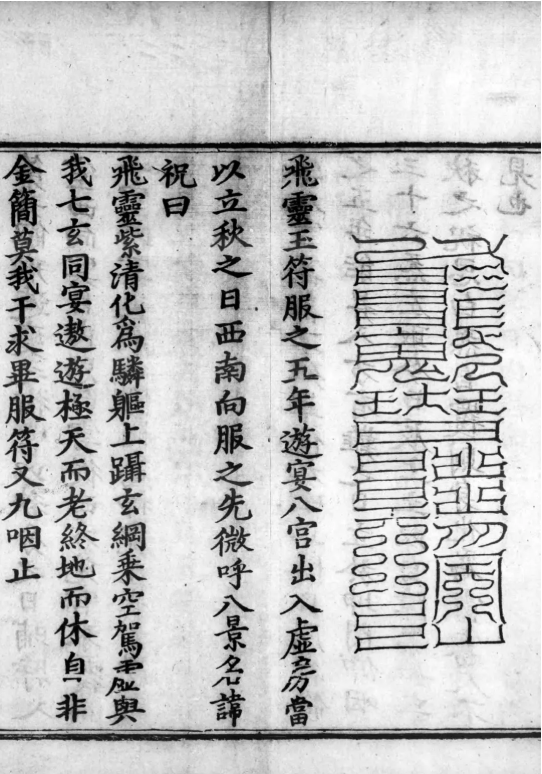 飛靈玉符服之五年遊宴八宫出入虚房當
以立秋之日西南向服之先微呼八景名諱
祝曰
飛靈紫清化為驎軀上躡玄綱乗空駕虚與
我七玄同宴遨遊極天而老終地而休自非
金簡莫我干求畢服符又九咽止